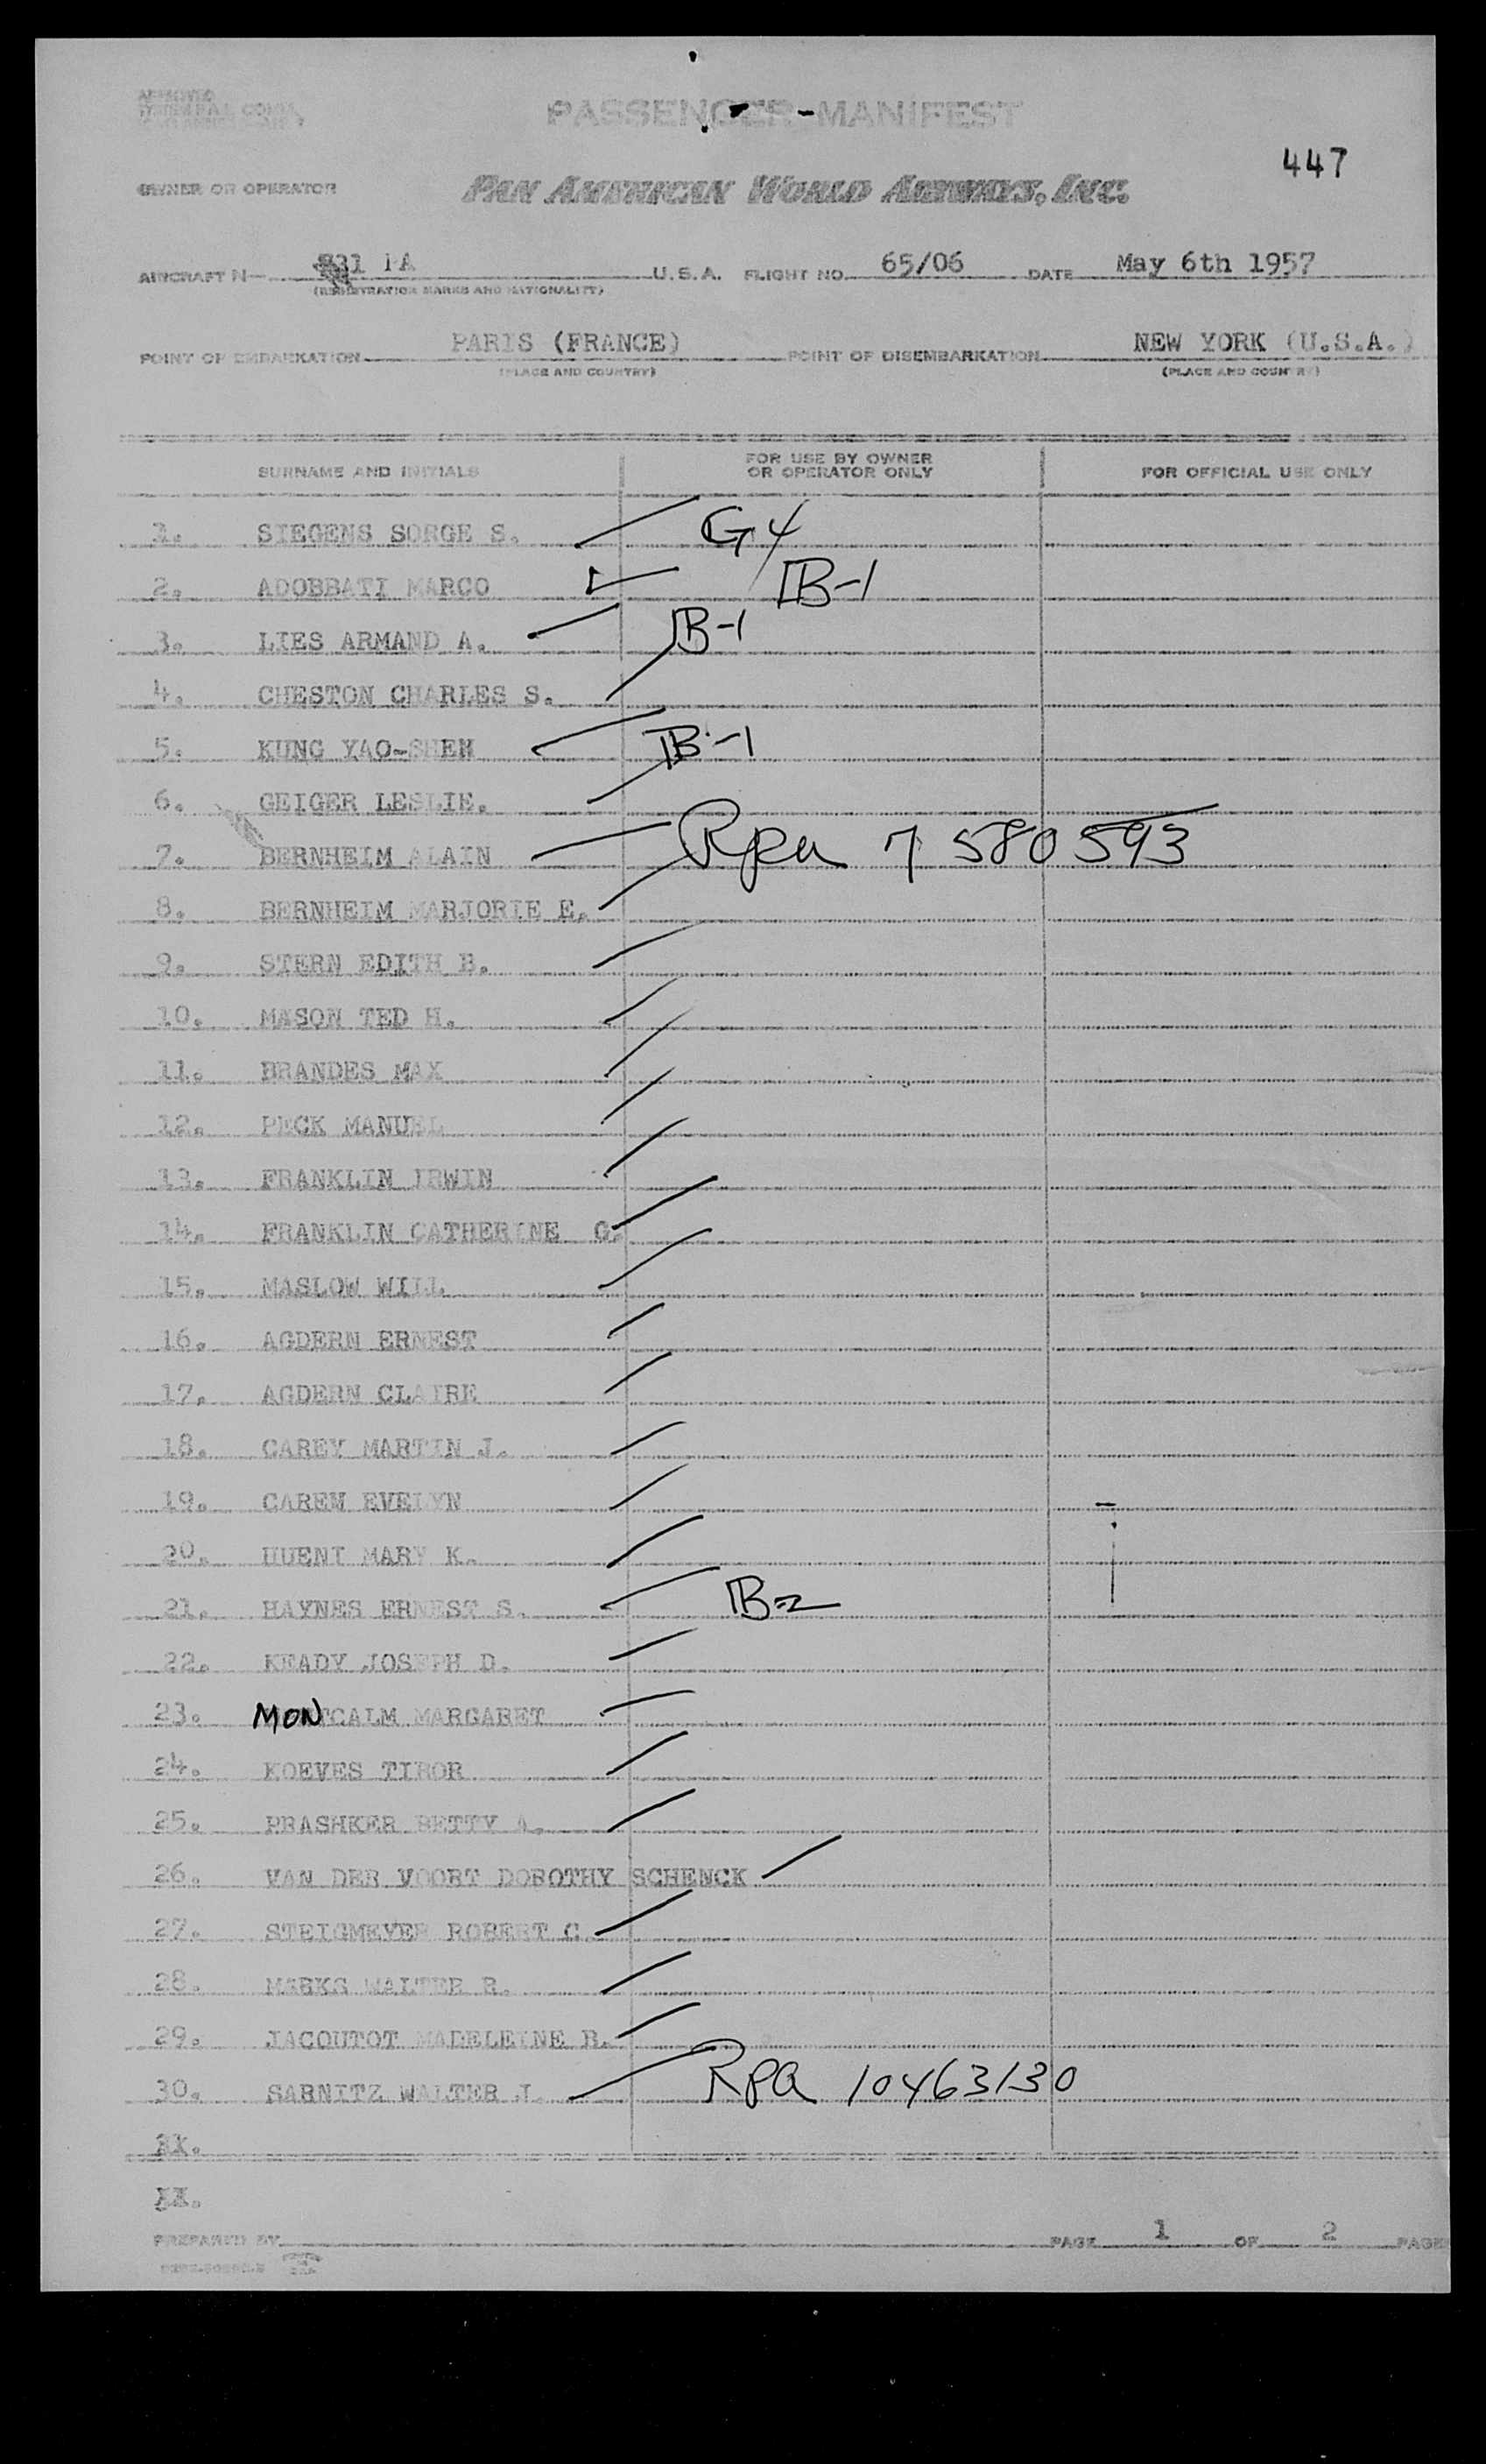 APPROVED
PASSENGER-MANIFEST
447
OWNER OR OPERATOR PAN AMERICAN WORLD AIRWAYS, INC.
AIRCRAFT N— 831 PA U.S.A. FLIGHT NO. 65/06 DATE May 6th 1957
(REGISTRATION MARKS AND NATIONALITY)
POINT OF EMBARKATION PARIS (FRANCE) POINT OF DISEMBARKATION NEW YORK (U.S.A.)
(PLACE AND COUNTRY) (PLACE AND COUNTRY)
SURNAME AND INITIALS FOR USE BY OWNER OR OPERATOR ONLY FOR OFFICIAL USE ONLY
1. SIEGENS SORGE S. G4
2. ADOBBATI MARCO B-1
3. LIES ARMAND A. B-1
4. CHESTON CHARLES S.
5. KUNG YAO-SHEN B-1
6. GEIGER LESLIE.
7. BERNHEIM ALAIN Rpa 7 580 593
8. BERNHEIM MARJORIE E.
9. STERN EDITH B.
10. MASON TED H.
11. BRANDES MAX
12. PECK MANUEL
13. FRANKLIN IRWIN
14. FRANKLIN CATHERINE G.
15. MASLOW WILL
16. AGDERN ERNEST
17. AGDERN CLAIRE
18. CAREY MARTIN J.
19. CAREM EVELYN
20. HUENT MARY K.
21. HAYNES ERNEST S. B-2
22. KEADY JOSEPH D.
23. MONTCALM MARGARET
24. KOEVES TIBOR
25. PRASHKER BETTY A.
26. VAN DER VOORT DOROTHY SCHENCK
27. STEIGMEYER ROBERT C.
28. MARKS WALTER R.
29. JACOUTOT MADELEINE R.
30. SARNITZ WALTER J. Rpa 10463130
PREPARED BY PAGE 1 OF 2 PAGE